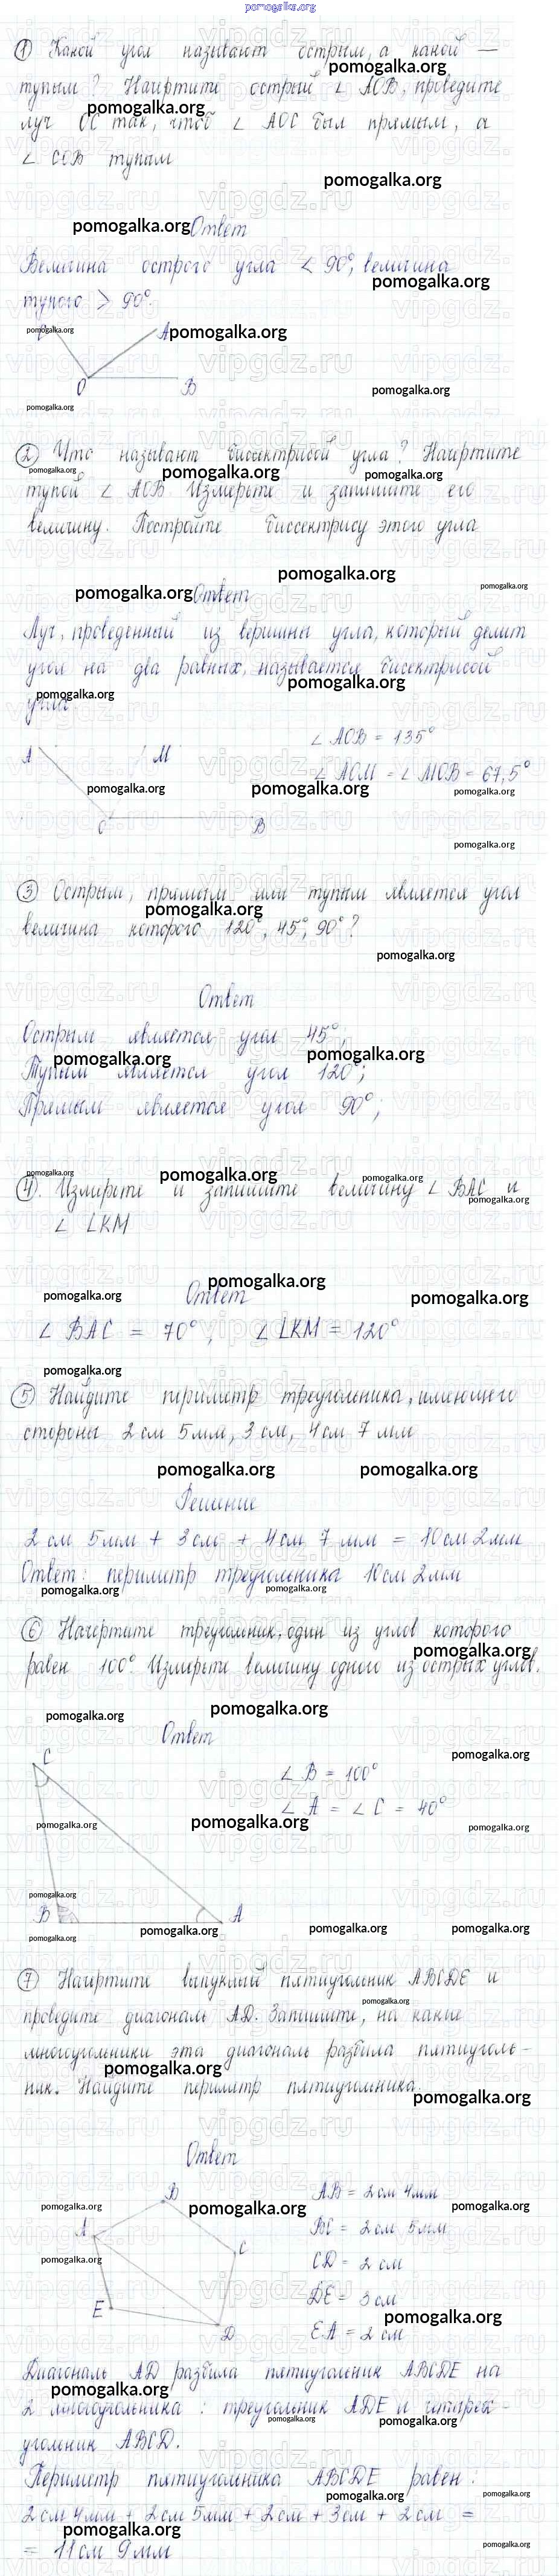 pomogalka.org
① Какой угол называют острым, а какой —
тупым? Начертите острый ∠ AOB, проведите
луч OC так, чтоб ∠ AOC был прямым, а
∠ COB тупым
Ответ
Величина острого угла < 90°, величина
тупого > 90°.
A
O
B
② Что называют биссектрисой угла? Начертите
тупой ∠ AOB Измерьте и запишите его
величину. Постройте биссектрису этого угла
Ответ
Луч, проведенный из вершины угла, который делит
угол на два равных, называется бисектрисой
угла.
A M ∠ AOB = 135°
∠ AOM = ∠ MOB = 67,5°
O B
③ Острым, прямым или тупым является угол
величина которого 120°, 45°, 90°?
Ответ
Острым является угол 45°;
Тупым является угол 120°;
Прямым является угол 90°;
④. Измерьте и запишите величину ∠ BAC и
∠ LKM
Ответ
∠ BAC = 70°, ∠ LKM = 120°
⑤ Найдите периметр треугольника, имеющего
стороны 2 см 5 мм, 3 см, 4 см 7 мм
Решение
2 см 5 мм + 3 см + 4 см 7 мм = 10 см 2 мм
Ответ: периметр треугольника 10 см 2 мм
⑥ Начертите треугольник, один из углов которого
равен 100°. Измерьте величину одного из острых углов.
Ответ
C
∠ B = 100°
∠ A = ∠ C = 40°
B A
⑦ Начертите выпуклый пятиугольник ABCDE и
проведите диагональ AD. Запишите, на какие
многоугольники эта диагональ разбила пятиуголь-
ник. Найдите периметр пятиугольника
Ответ
B AB = 2 см 4 мм
A BC = 2 см 5 мм
C CD = 2 см
DE = 3 см
E D EA = 2 см
Диагональ AD разбила пятиугольник ABCDE на
2 многоугольника: треугольник ADE и четырех-
угольник ABCD.
Периметр пятиугольника ABCDE равен:
2 см 4 мм + 2 см 5 мм + 2 см + 3 см + 2 см =
= 11 см 9 мм